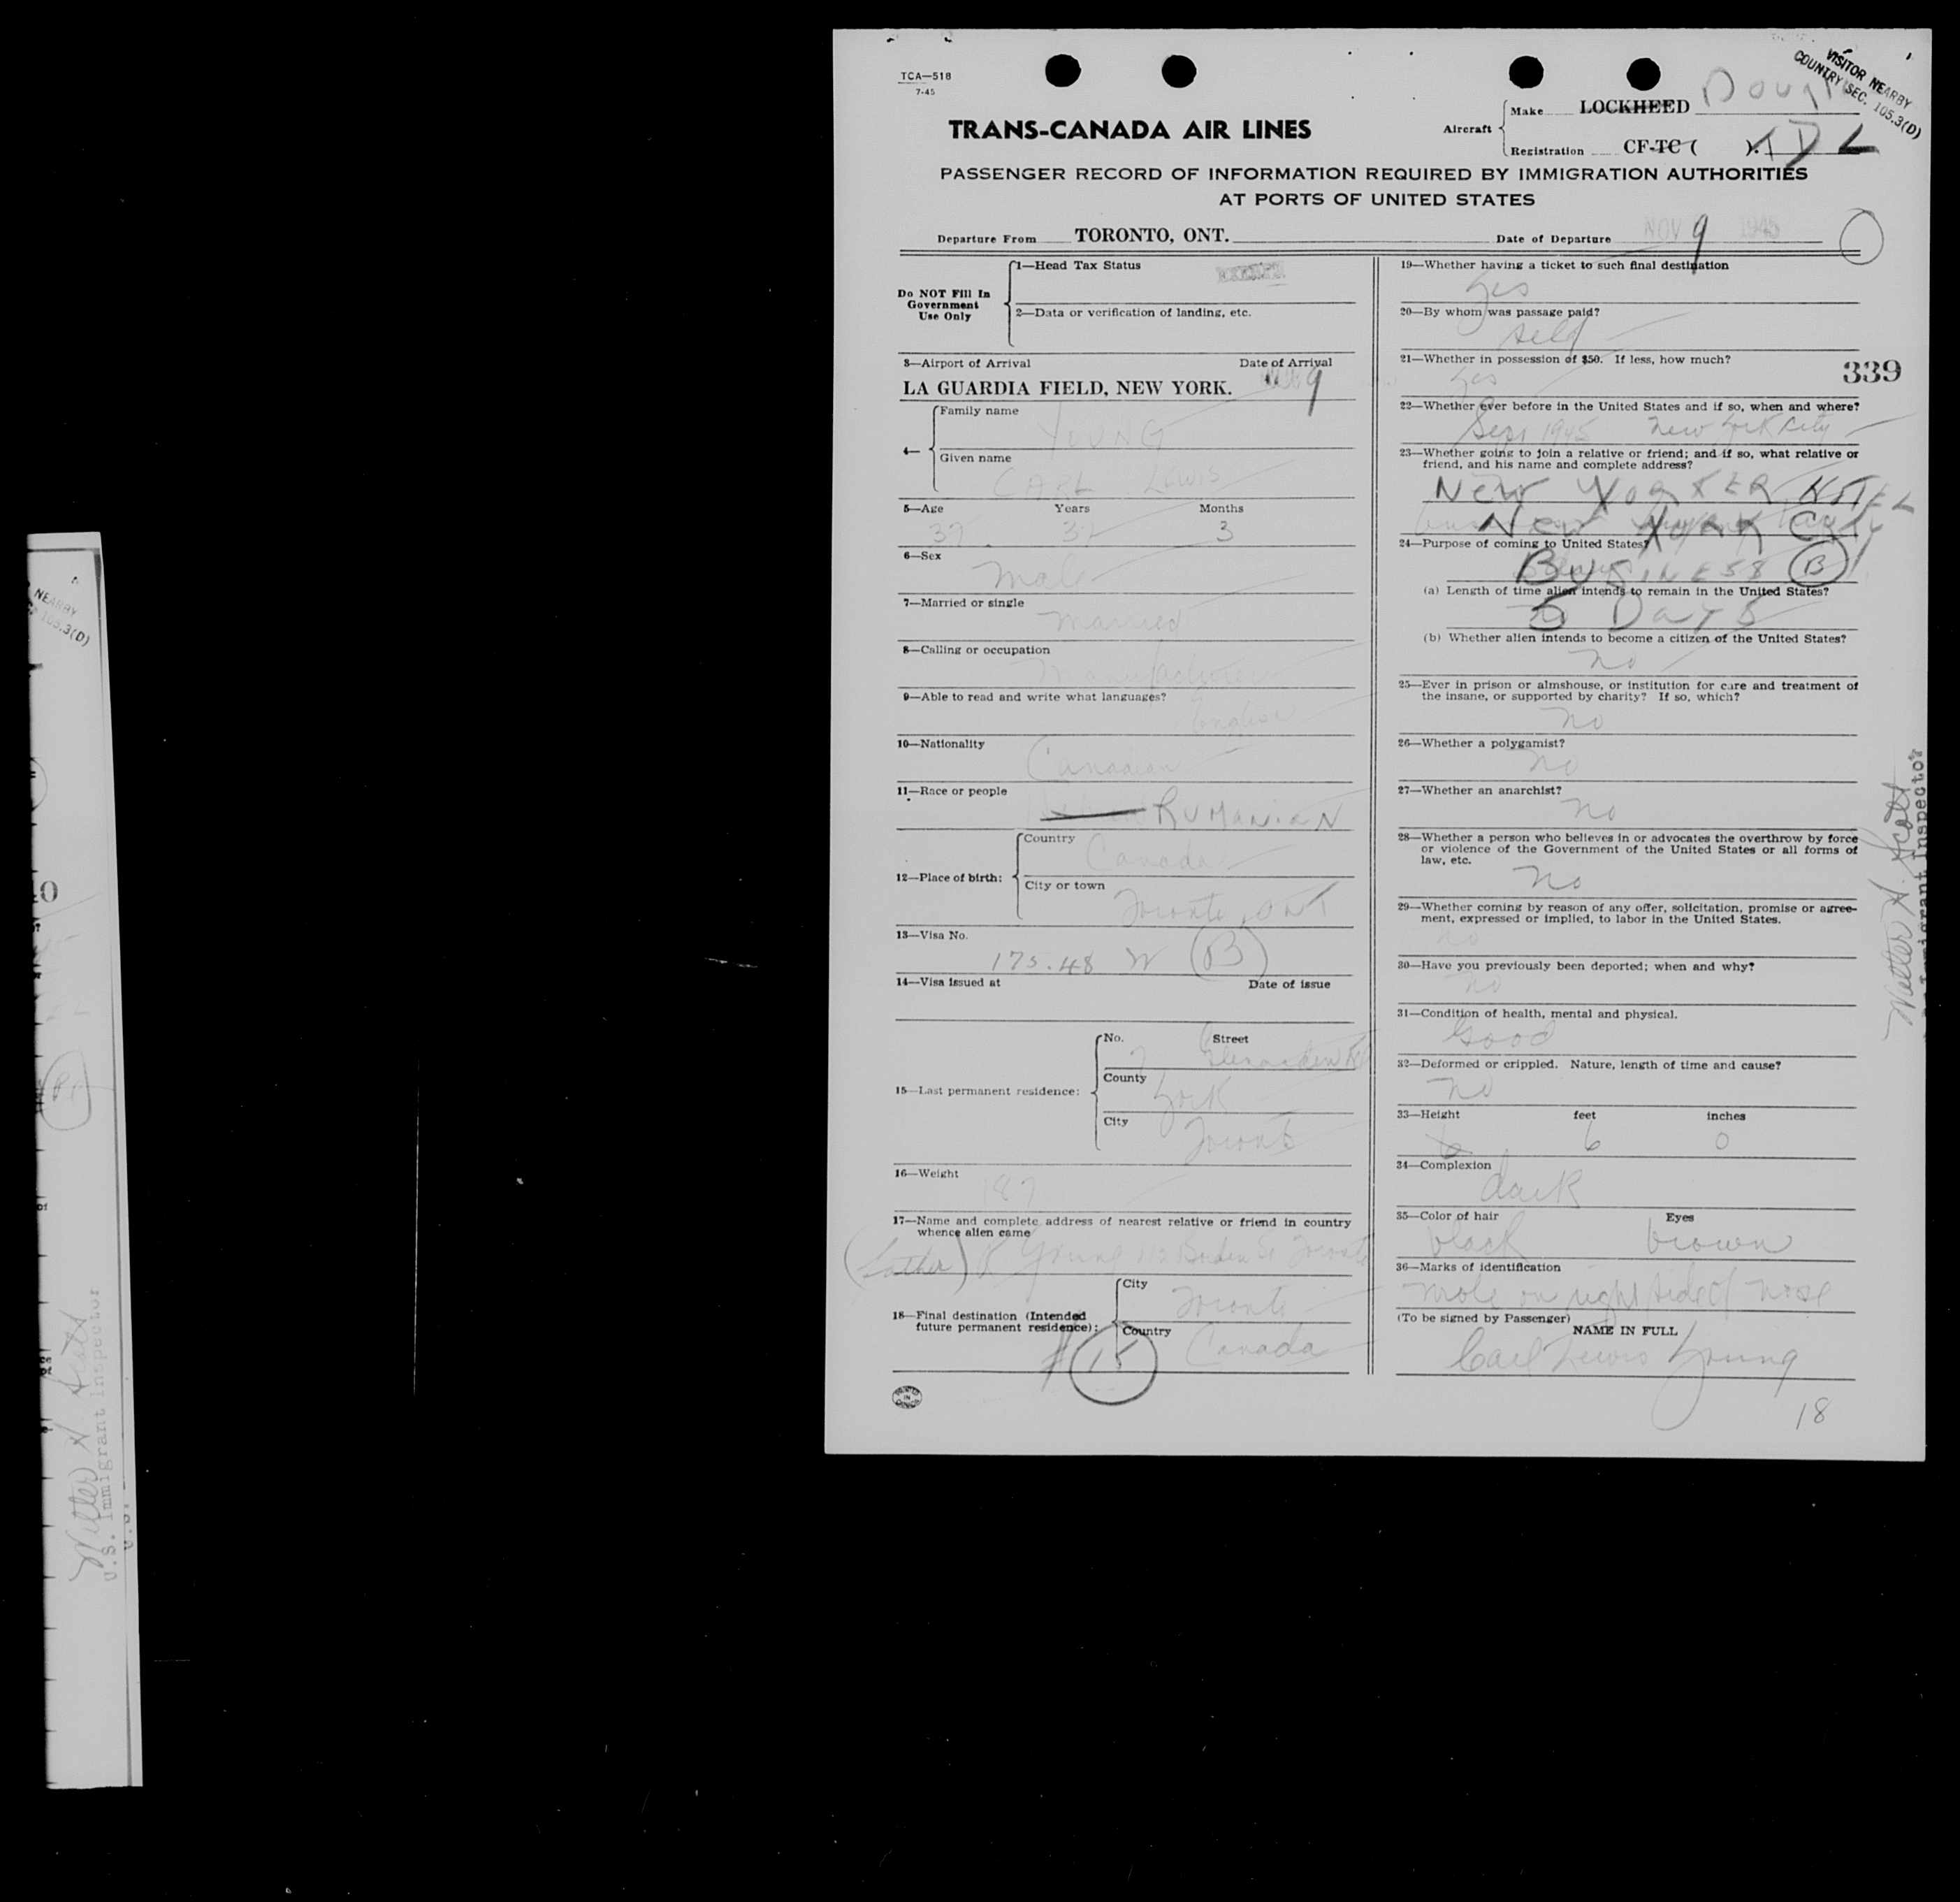 TCA—518
7-45
VISITOR NEARBY
COUNTRY SEC. 105.3(D)
TRANS-CANADA AIR LINES
Aircraft
Make LOCKHEED
Registration CF-TC ( ). TDL
PASSENGER RECORD OF INFORMATION REQUIRED BY IMMIGRATION AUTHORITIES
AT PORTS OF UNITED STATES
Departure From TORONTO, ONT.
Date of Departure NOV 9 1945
Do NOT Fill In
Government
Use Only
1—Head Tax Status
2—Data or verification of landing, etc.
3—Airport of Arrival Date of Arrival
LA GUARDIA FIELD, NEW YORK. 9
4—
Family name
YOUNG
Given name
CARL LEWIS
5—Age Years Months
37 3
6—Sex
Male
7—Married or single
Married
8—Calling or occupation
Manufacturer
9—Able to read and write what languages?
English
10—Nationality
Canadian
11—Race or people
RUMANIAN
12—Place of birth:
Country
Canada
City or town
Toronto, ONT
13—Visa No.
175.48 W (B)
14—Visa issued at Date of issue
15—Last permanent residence:
No. Street
7
County
York
City
Toronto
16—Weight
187
17—Name and complete address of nearest relative or friend in country
whence alien came
(father) Young Toronto
18—Final destination (Intended
future permanent residence):
City
Toronto
Country
Canada
15
PRINTED IN CANADA
19—Whether having a ticket to such final destination
Yes
20—By whom was passage paid?
self
21—Whether in possession of $50. If less, how much?
Yes
339
22—Whether ever before in the United States and if so, when and where?
Sept 1945 New York City
23—Whether going to join a relative or friend; and if so, what relative or
friend, and his name and complete address?
NEW YORKER HOTEL
NEW YORK CITY
24—Purpose of coming to United States?
BUSINESS (B)
(a) Length of time alien intends to remain in the United States?
5 DAYS
(b) Whether alien intends to become a citizen of the United States?
no
25—Ever in prison or almshouse, or institution for care and treatment of
the insane, or supported by charity? If so, which?
no
26—Whether a polygamist?
no
27—Whether an anarchist?
no
28—Whether a person who believes in or advocates the overthrow by force
or violence of the Government of the United States or all forms of
law, etc.
no
29—Whether coming by reason of any offer, solicitation, promise or agree-
ment, expressed or implied, to labor in the United States.
no
30—Have you previously been deported; when and why?
no
31—Condition of health, mental and physical.
Good
32—Deformed or crippled. Nature, length of time and cause?
no
33—Height feet inches
6 0
34—Complexion
dark
35—Color of hair Eyes
black brown
36—Marks of identification
mole on right side of nose
(To be signed by Passenger)
NAME IN FULL
Carl Lewis Young
18
Immigrant Inspector
NEARBY
105.3(D)
U.S. Immigrant Inspector